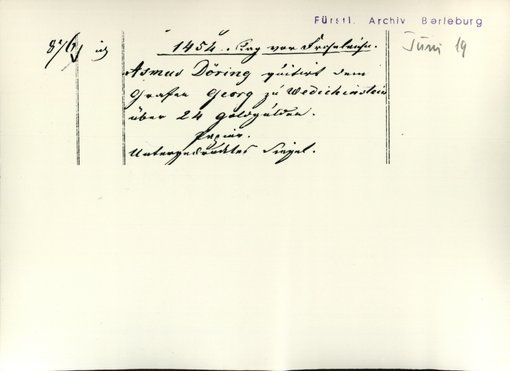 Fürstl. Archiv Berleburg
Juni 19
1454. Tag vor Frohnleichn.
Asmus Döring quitirt dem
Grafen Georg zu
über 24 Goldgulden.
Papier.
Untergedrucktes Siegel.